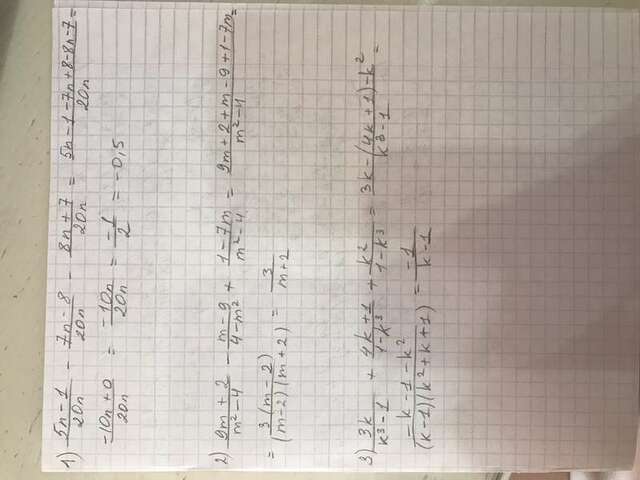 1) (5n-1)/20n - (7n-8)/20n - (8n+7)/20n = (5n-1-7n+8-8n-7)/20n =
(-10n+0)/20n = -10n/20n = -1/2 = -0,5
2) (9m+2)/(m²-4) - (m-9)/(4-m²) + (1-7m)/(m²-4) = (9m+2+m-9+1-7m)/(m²-4) =
= 3(m-2)/((m-2)(m+2)) = 3/(m+2)
3) 3k/(k³-1) + (4k+1)/(1-k³) + k²/(1-k³) = (3k-(4k+1)-k²)/(k³-1) =
(-k-1-k²)/((k-1)(k²+k+1)) = -1/(k-1)